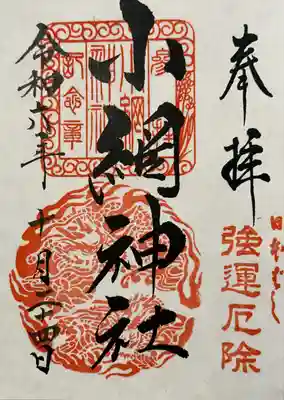 奉拝
日本ばし
強運厄除
小網神社
令和六年 十月二十四日
記念章